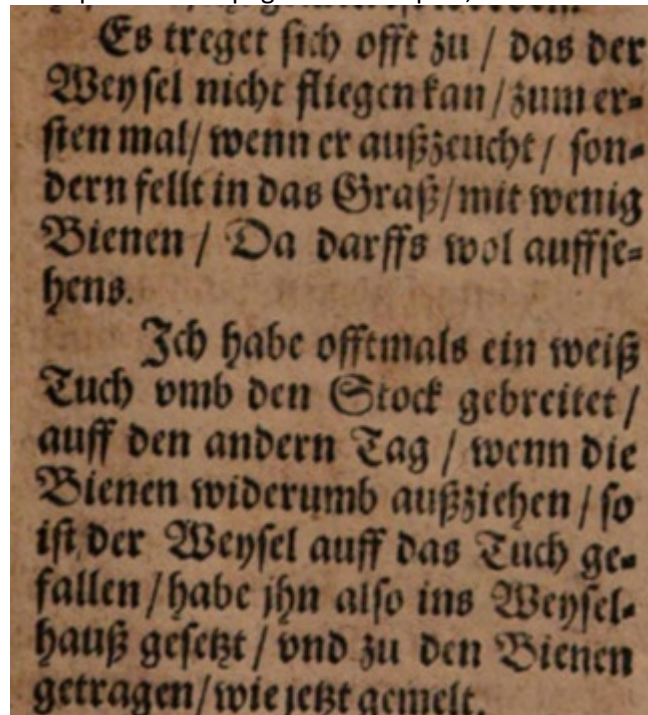 Es treget sich offt zu / das der
Weysel nicht fliegen kan / zum er-
sten mal / wenn er außzeucht / son-
dern fellt in das Graß / mit wenig
Bienen / Da darffs wol auffse-
hens.
Ich habe offtmals ein weiß
Tuch vmb den Stock gebreitet /
auff den andern Tag / wenn die
Bienen widerumb außziehen / so
ist der Weysel auff das Tuch ge-
fallen / habe jhn also ins Weysel-
hauß gesetzt / vnd zu den Bienen
getragen / wie jetzt gemelt.